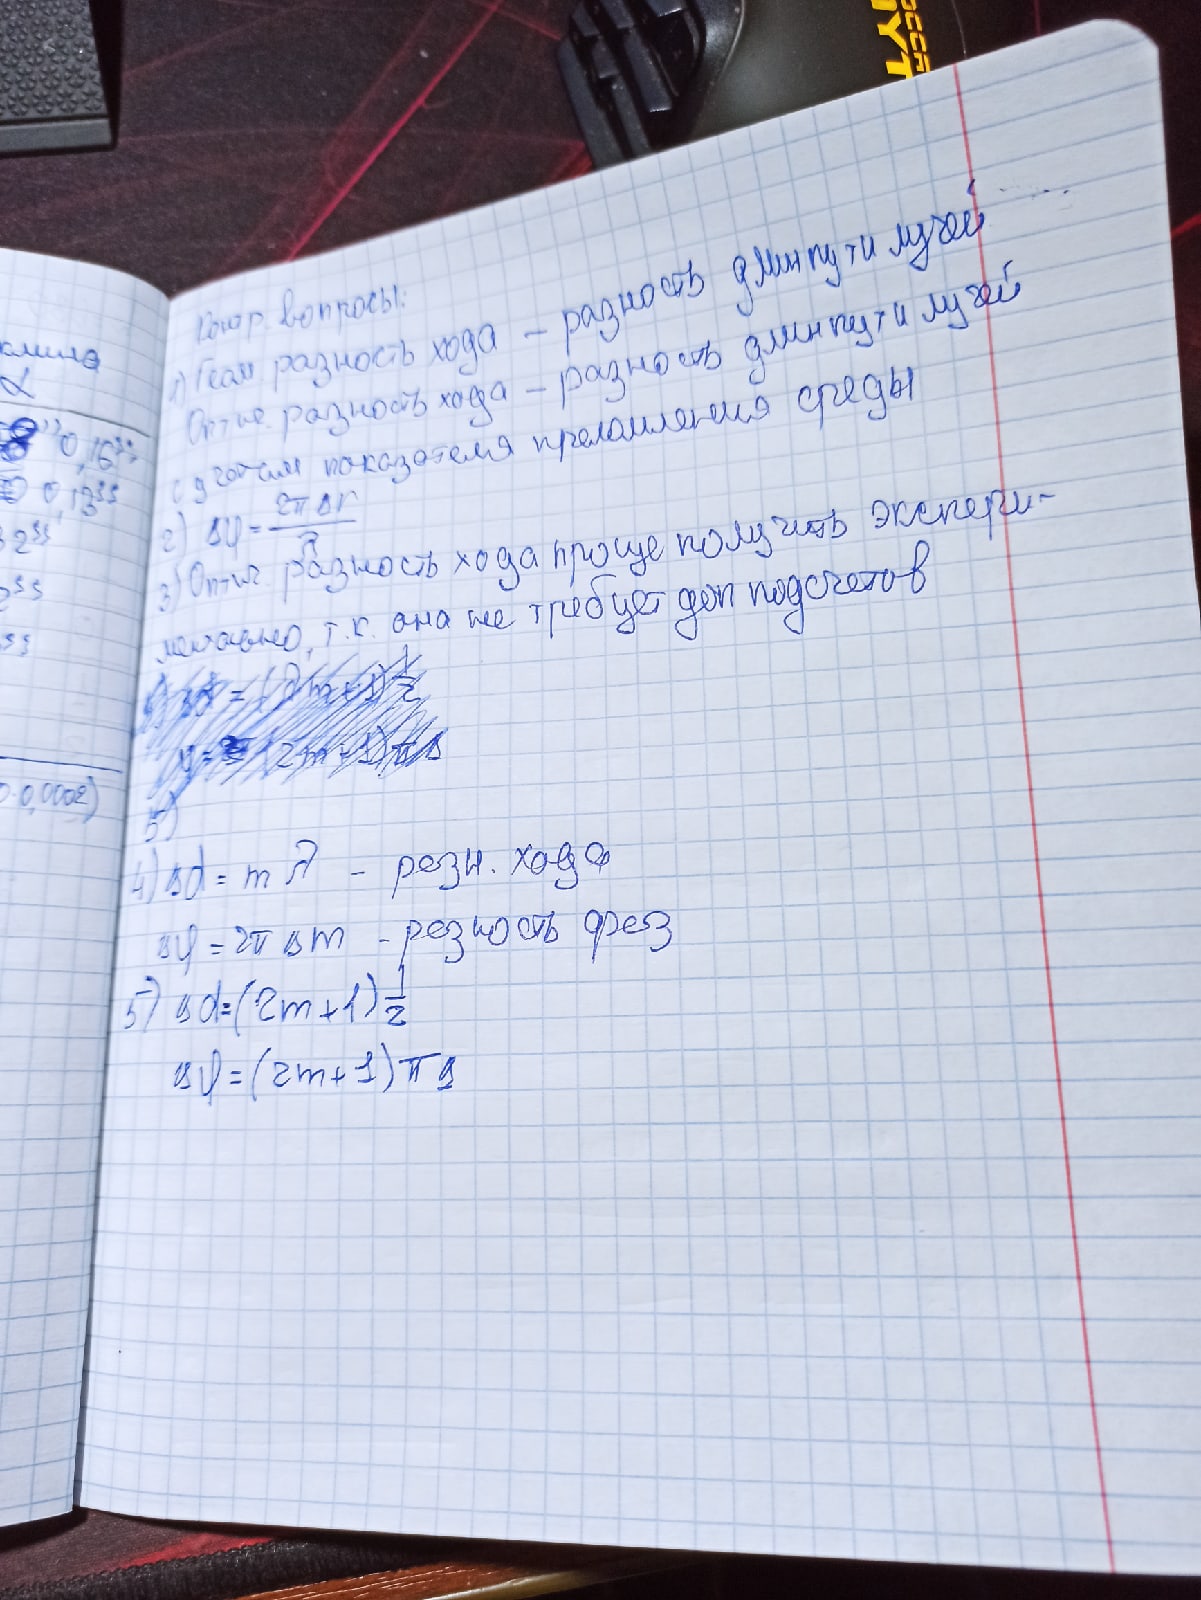 ОЕССА
НУТ
клина
α
0,16''
0,13''
2''
2''
0,0002)
Контр. вопросы:
1) Геом разность хода – разность длин пути лучей
Оптич. разность хода – разность длин пути лучей
с учётом показателя преломления среды
2) Δφ = 2πΔr / λ
3) Оптич. разность хода проще получить экспери-
ментально, т.к. она не требует доп подсчетов
5)
4) Δd = m λ – разн. хода
Δφ = 2π Δm – разность фаз
5) Δd = (2m+1) 1/2
Δφ = (2m+1) π Δ